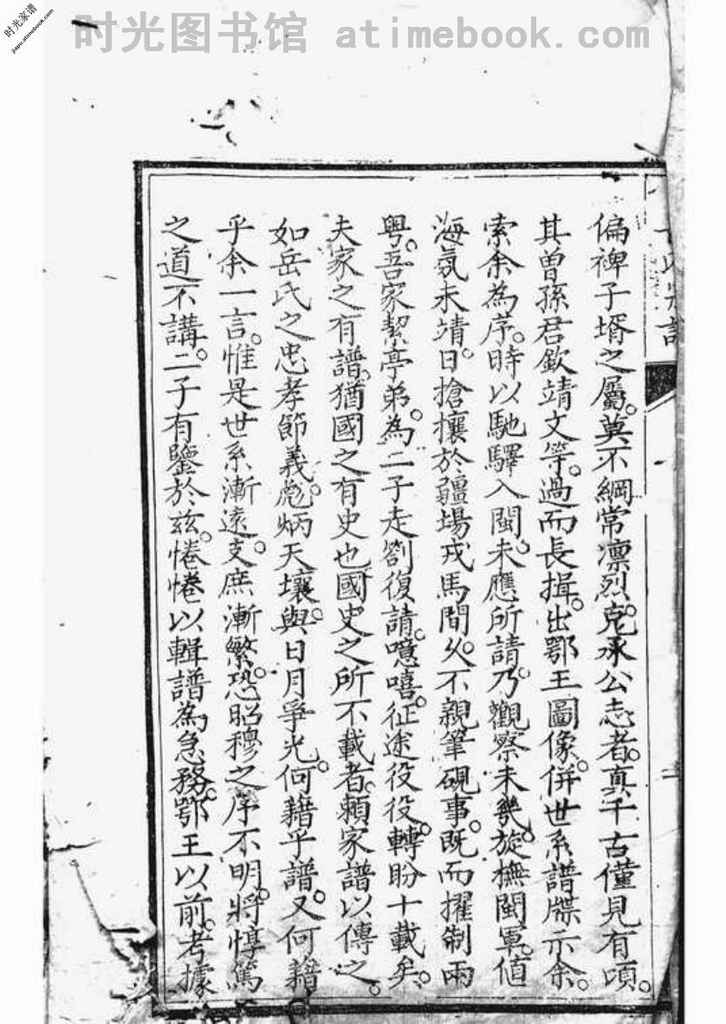 时光图书馆 atimebook.com
时光家谱
偏裨子壻之屬。莫不綱常凛烈。克承公志者。真千古僅見有頃。
其曾孫君欽靖文等。過而長揖。出鄂王圖像。併世系譜牒示余。
索余為序。時以馳驛入閩。未應所請。乃觀察未幾。旋撫閩軍。值
海氛未靖。日搶攘於疆場戎馬間。久不親筆硯事。既而擢制兩
粤。吾家絜亭弟。為二子走劄復請。噫嘻。征途役役。轉盼十載矣。
夫家之有譜。猶國之有史也國史之所不載者。賴家譜以傳之。
如岳氏之忠孝節義。彪炳天壤。與日月爭光。何藉乎譜。又何藉
乎余一言。惟是世系漸遠。支庶漸繁。恐昭穆之序不明。將惇篤
之道不講。二子有鑒於兹。惓惓以輯譜為急務。鄂王以前。考據